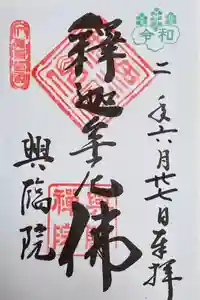 令和
二年六月廿七日奉拝
釋迦牟尼佛
興臨院